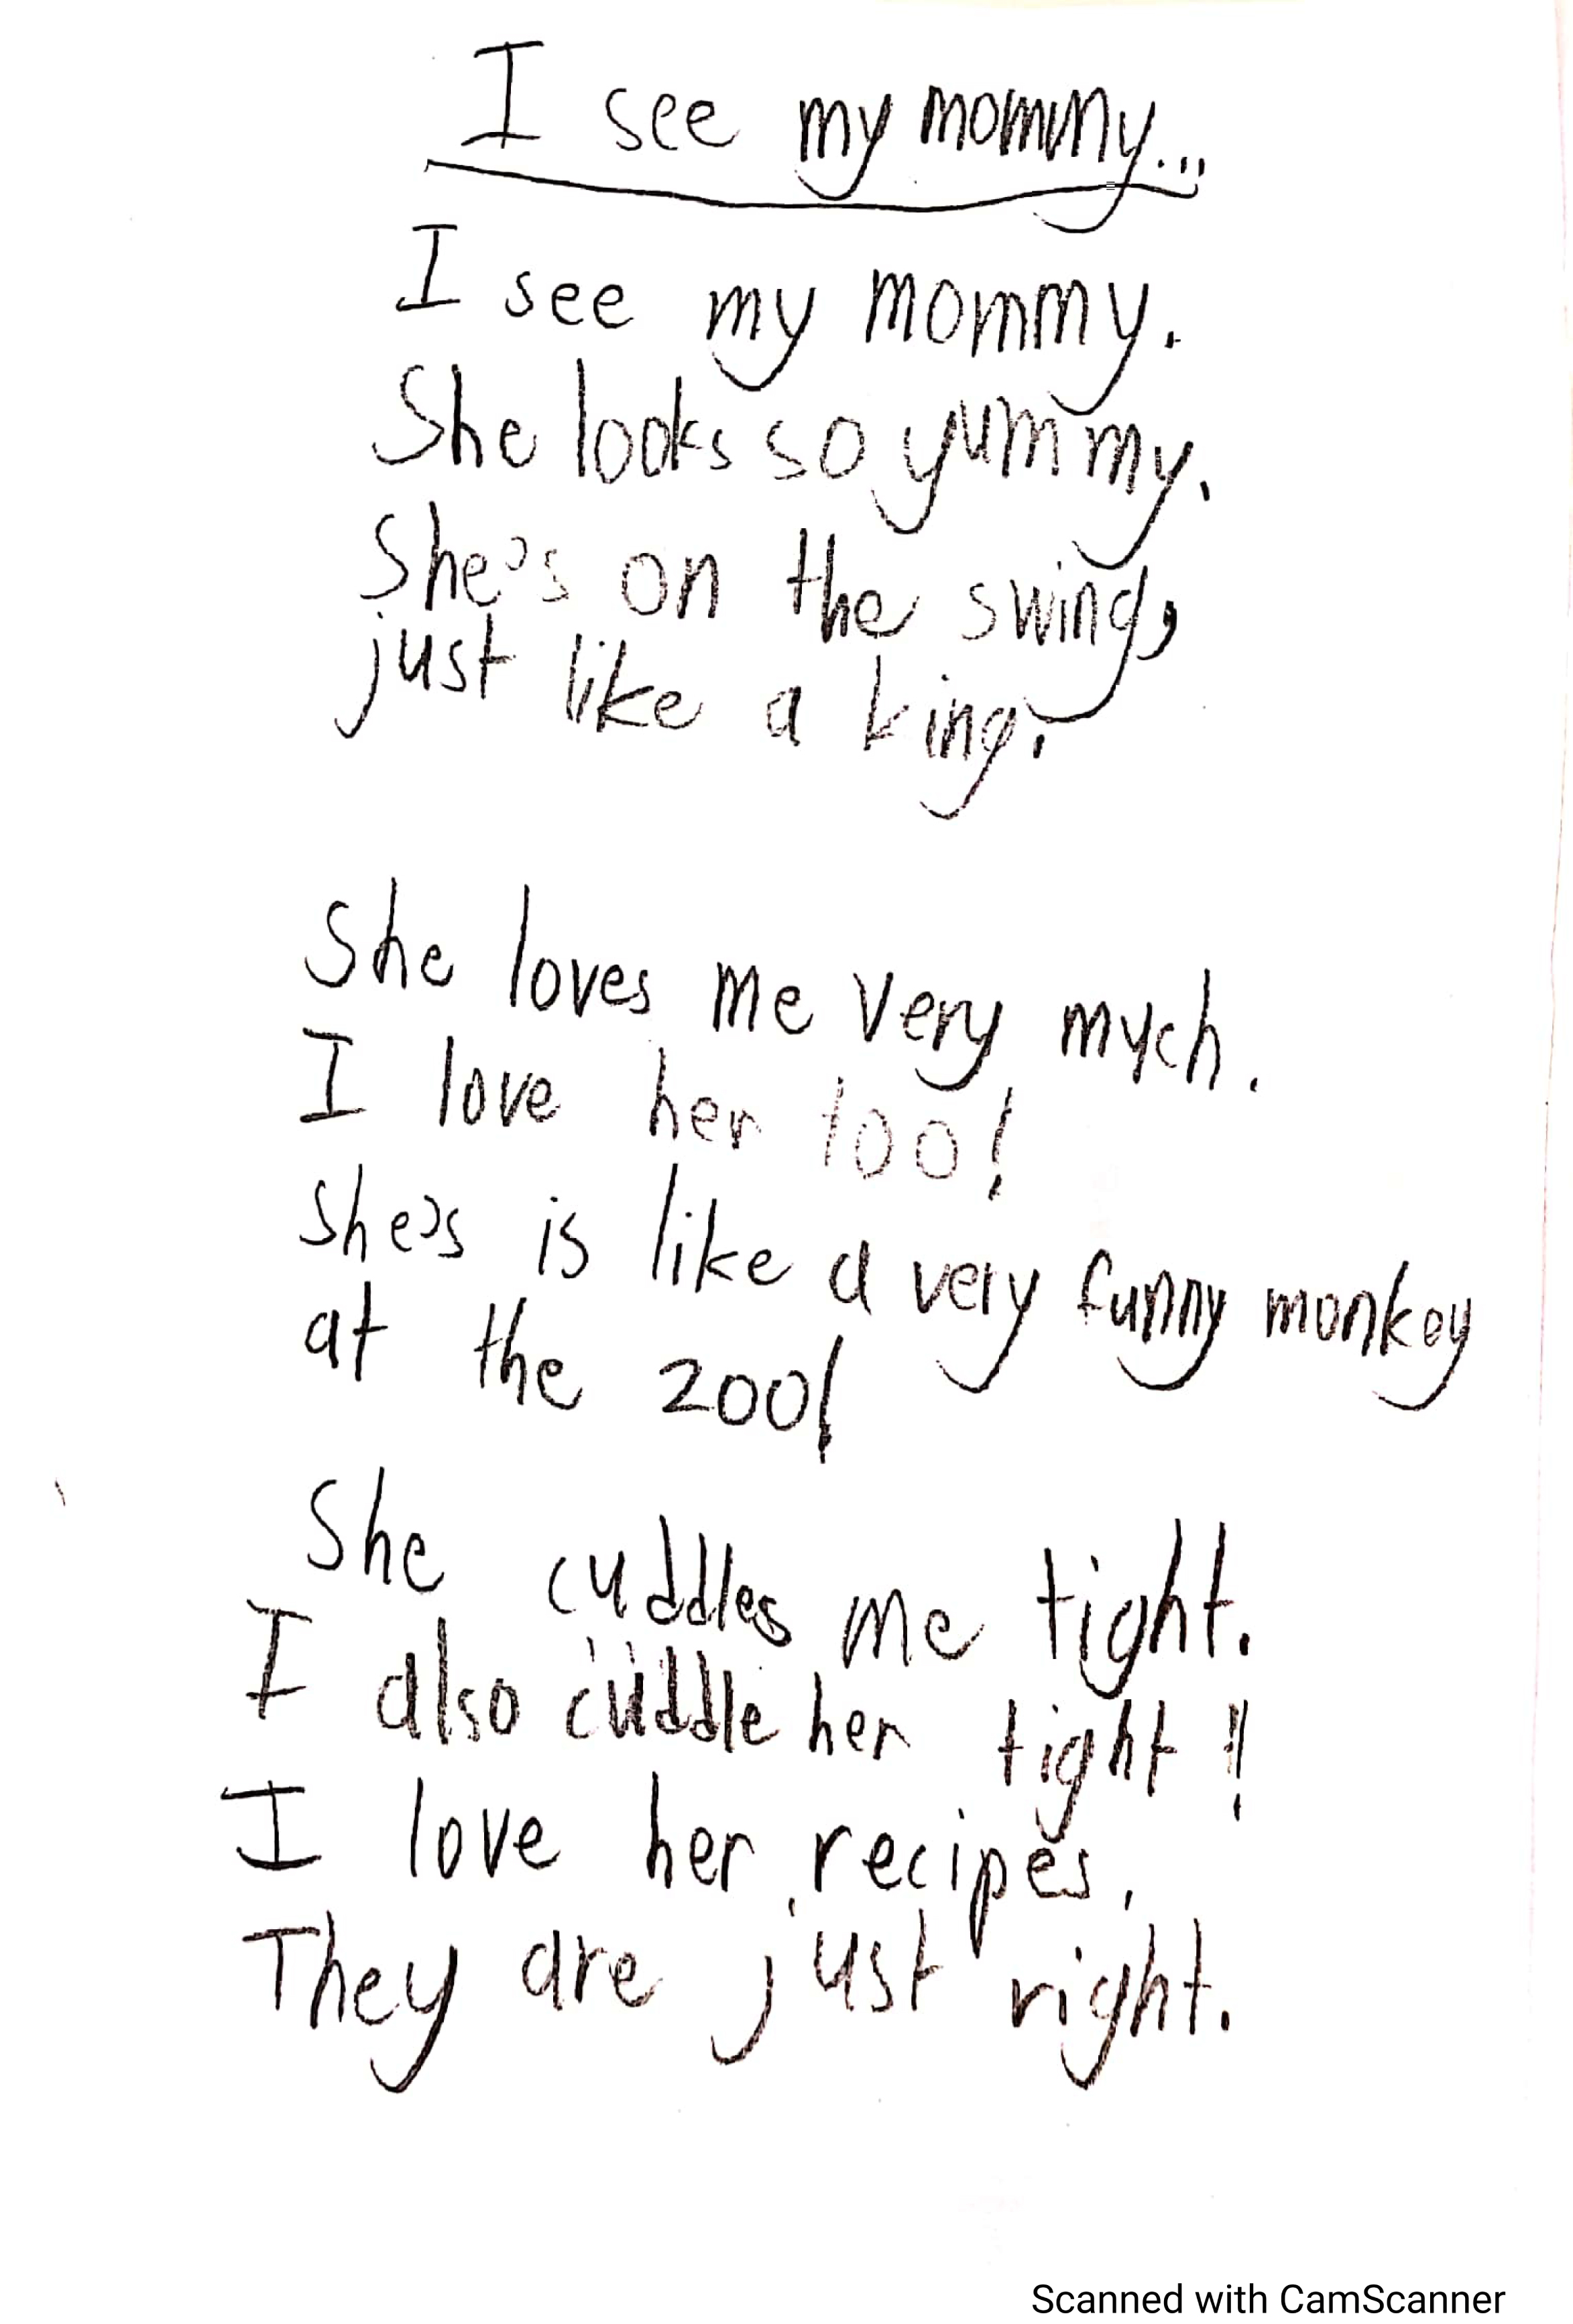 I see my mommy...
I see my mommy.
She looks so yummy.
She's on the swing,
just like a king.
She loves me very much.
I love her too!
She's is like a very funny monkey
at the zoo!
She cuddles me tight.
I also cuddle her tight!!
I love her recipes.
They are just right.
Scanned with CamScanner